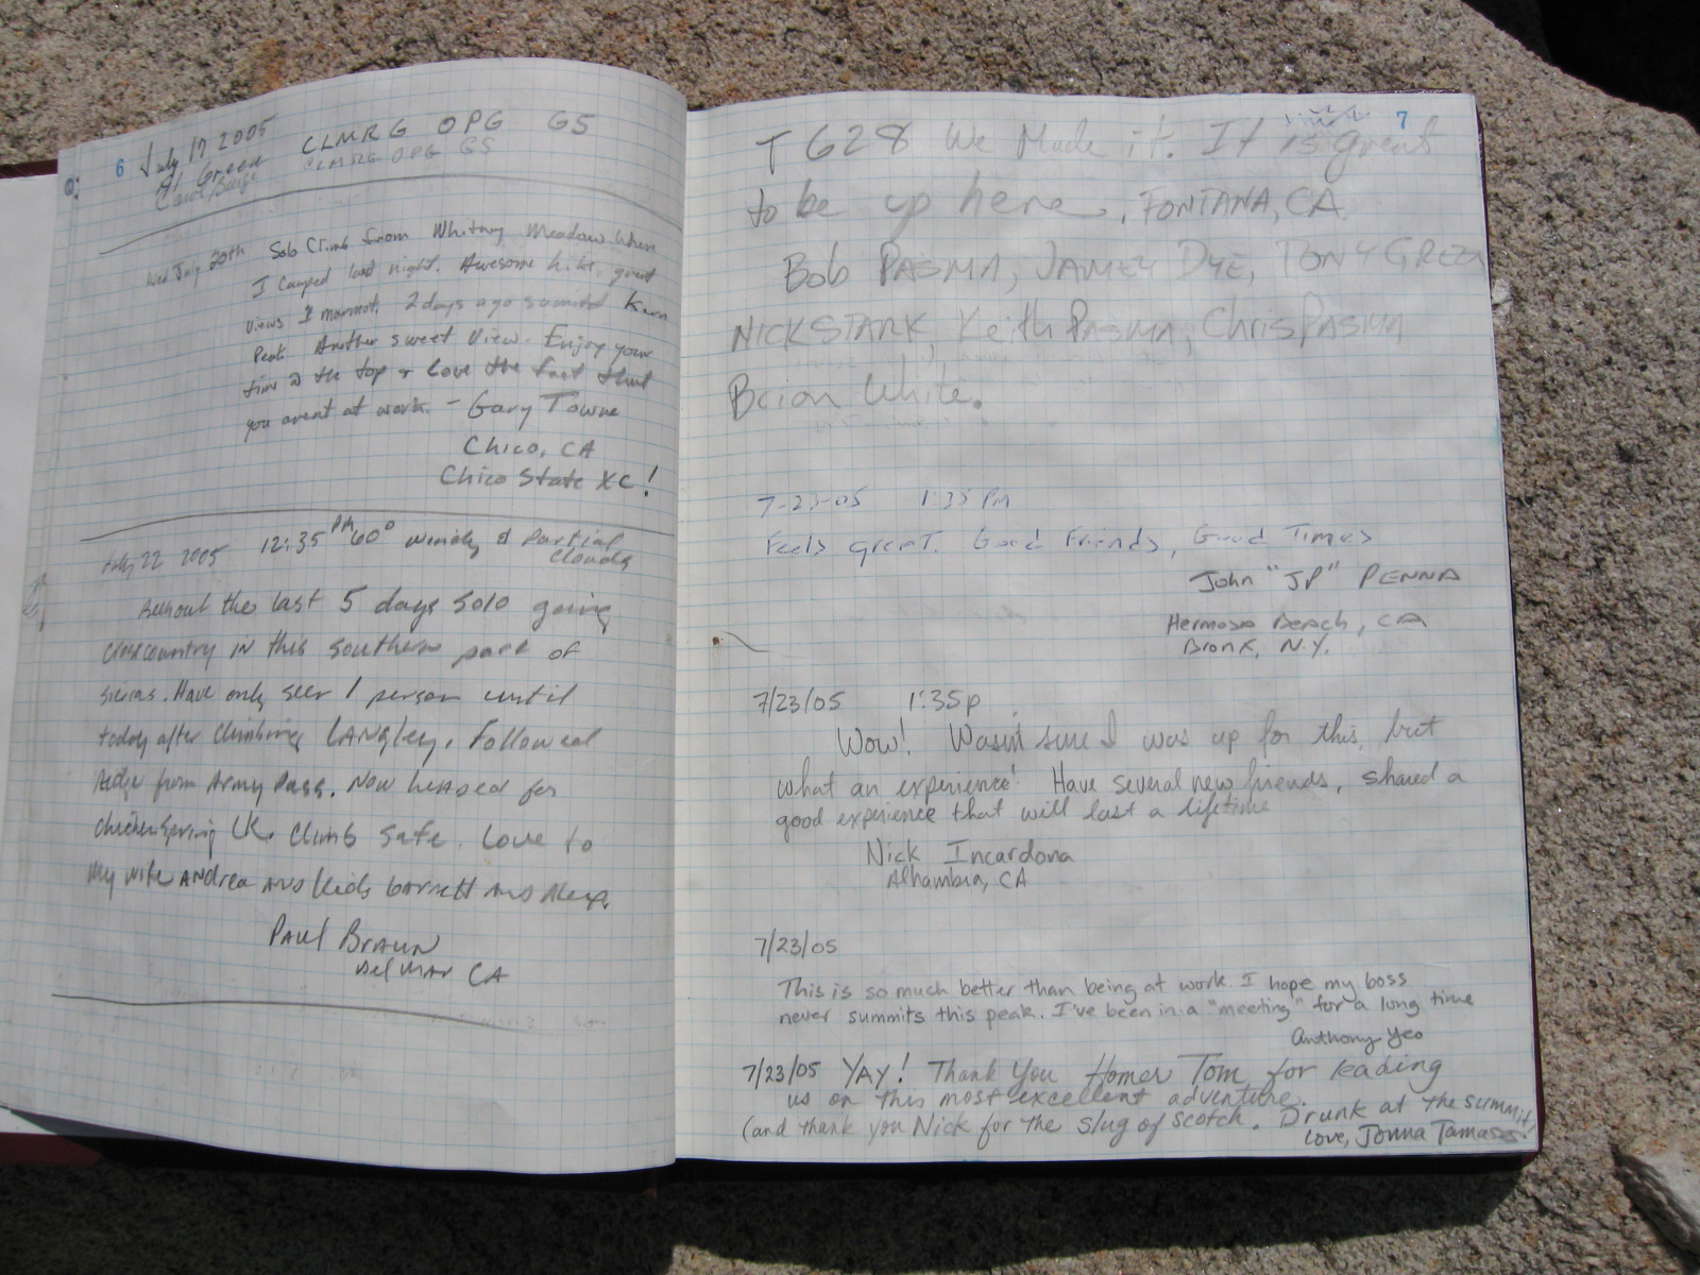 6 July 17 2005 CLMRG OPG GS
Al Green CLMRG OPG GS
Wed July 20th Solo Climb from Whitney Meadow where
I camped last night. Awesome hike, great
views 1 marmot. 2 days ago summited Kern
Peak. Another sweet view. Enjoy your
time @ the top & love the fact that
you arent at work. - Gary Towne
Chico, CA
Chico State XC!
July 22 2005 12:35 PM 60° windy & Partial
Clouds
the last 5 days solo going
in this southern part of
sierras. Have only seen 1 person until
today after climbing LANgley. Followed
Ridge from Army Pass. Now headed for
chicken spring LK. Climb safe. Love to
My wife ANdrea AND kids
PAUL BrAUN
Del MAr CA
7
T 628 We Made it. It is great
to be up here. FONTANA, CA.
Bob PASMA, JAMEY DYE, TONY
NICK STARK, Keith PASMA, Chris PASMA
Brian White.
7-23-05 1:35 PM
Feels great. Good Friends, Good Times
John "JP" PENNA
Hermosa Beach, CA
Bronx, N.Y.
7/23/05 1:35p
Wow! Wasn't sure I was up for this, but
what an experience! Have several new friends, shared a
good experience that will last a lifetime
Nick Incardona
Alhambra, CA
7/23/05
This is so much better than being at work. I hope my boss
never summits this peak. I've been in a "meeting" for a long time
Anthony Yeo
7/23/05 YAY! Thank You Homer Tom for leading
us on this most excellent adventure.
(and thank you Nick for the slug of scotch. Drunk at the summit!
Love, Jonna Tamases